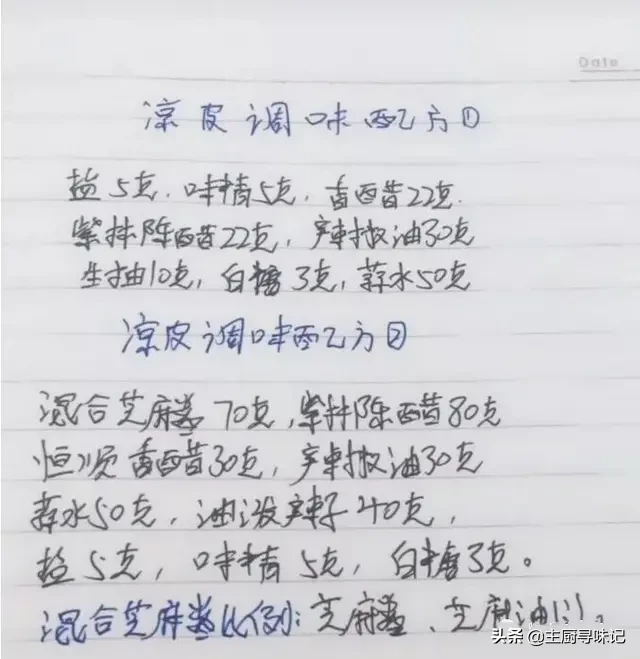 Date
凉皮调味配方①
盐5克,味精5克,香醋22克
紫林陈醋22克,辣椒油30克
生抽10克,白糖3克,蒜水50克
凉皮调味配方②
混合芝麻酱70克,紫林陈醋80克
恒顺香醋30克,辣椒油30克
蒜水50克,油泼辣子40克,
盐5克,味精5克,白糖3克。
混合芝麻酱比例:芝麻酱、芝麻油1:1。
头条 @主厨寻味记